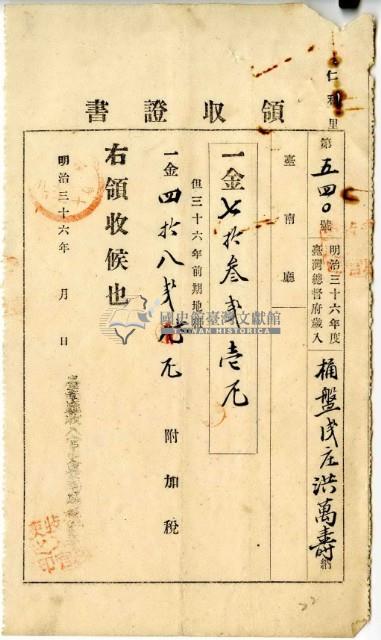 領收證書
仁和里
第五四〇號
明治三十六年度
臺灣總督府歲入
桶盤浅庄洪萬壽納
臺南廳
一金七拾叁戔壹厘
但三十六年前期地租
一金四拾八戔
附加稅
右領收候也
明治三十六年 月 日
國史館臺灣文獻館
TAIWAN HISTORICA